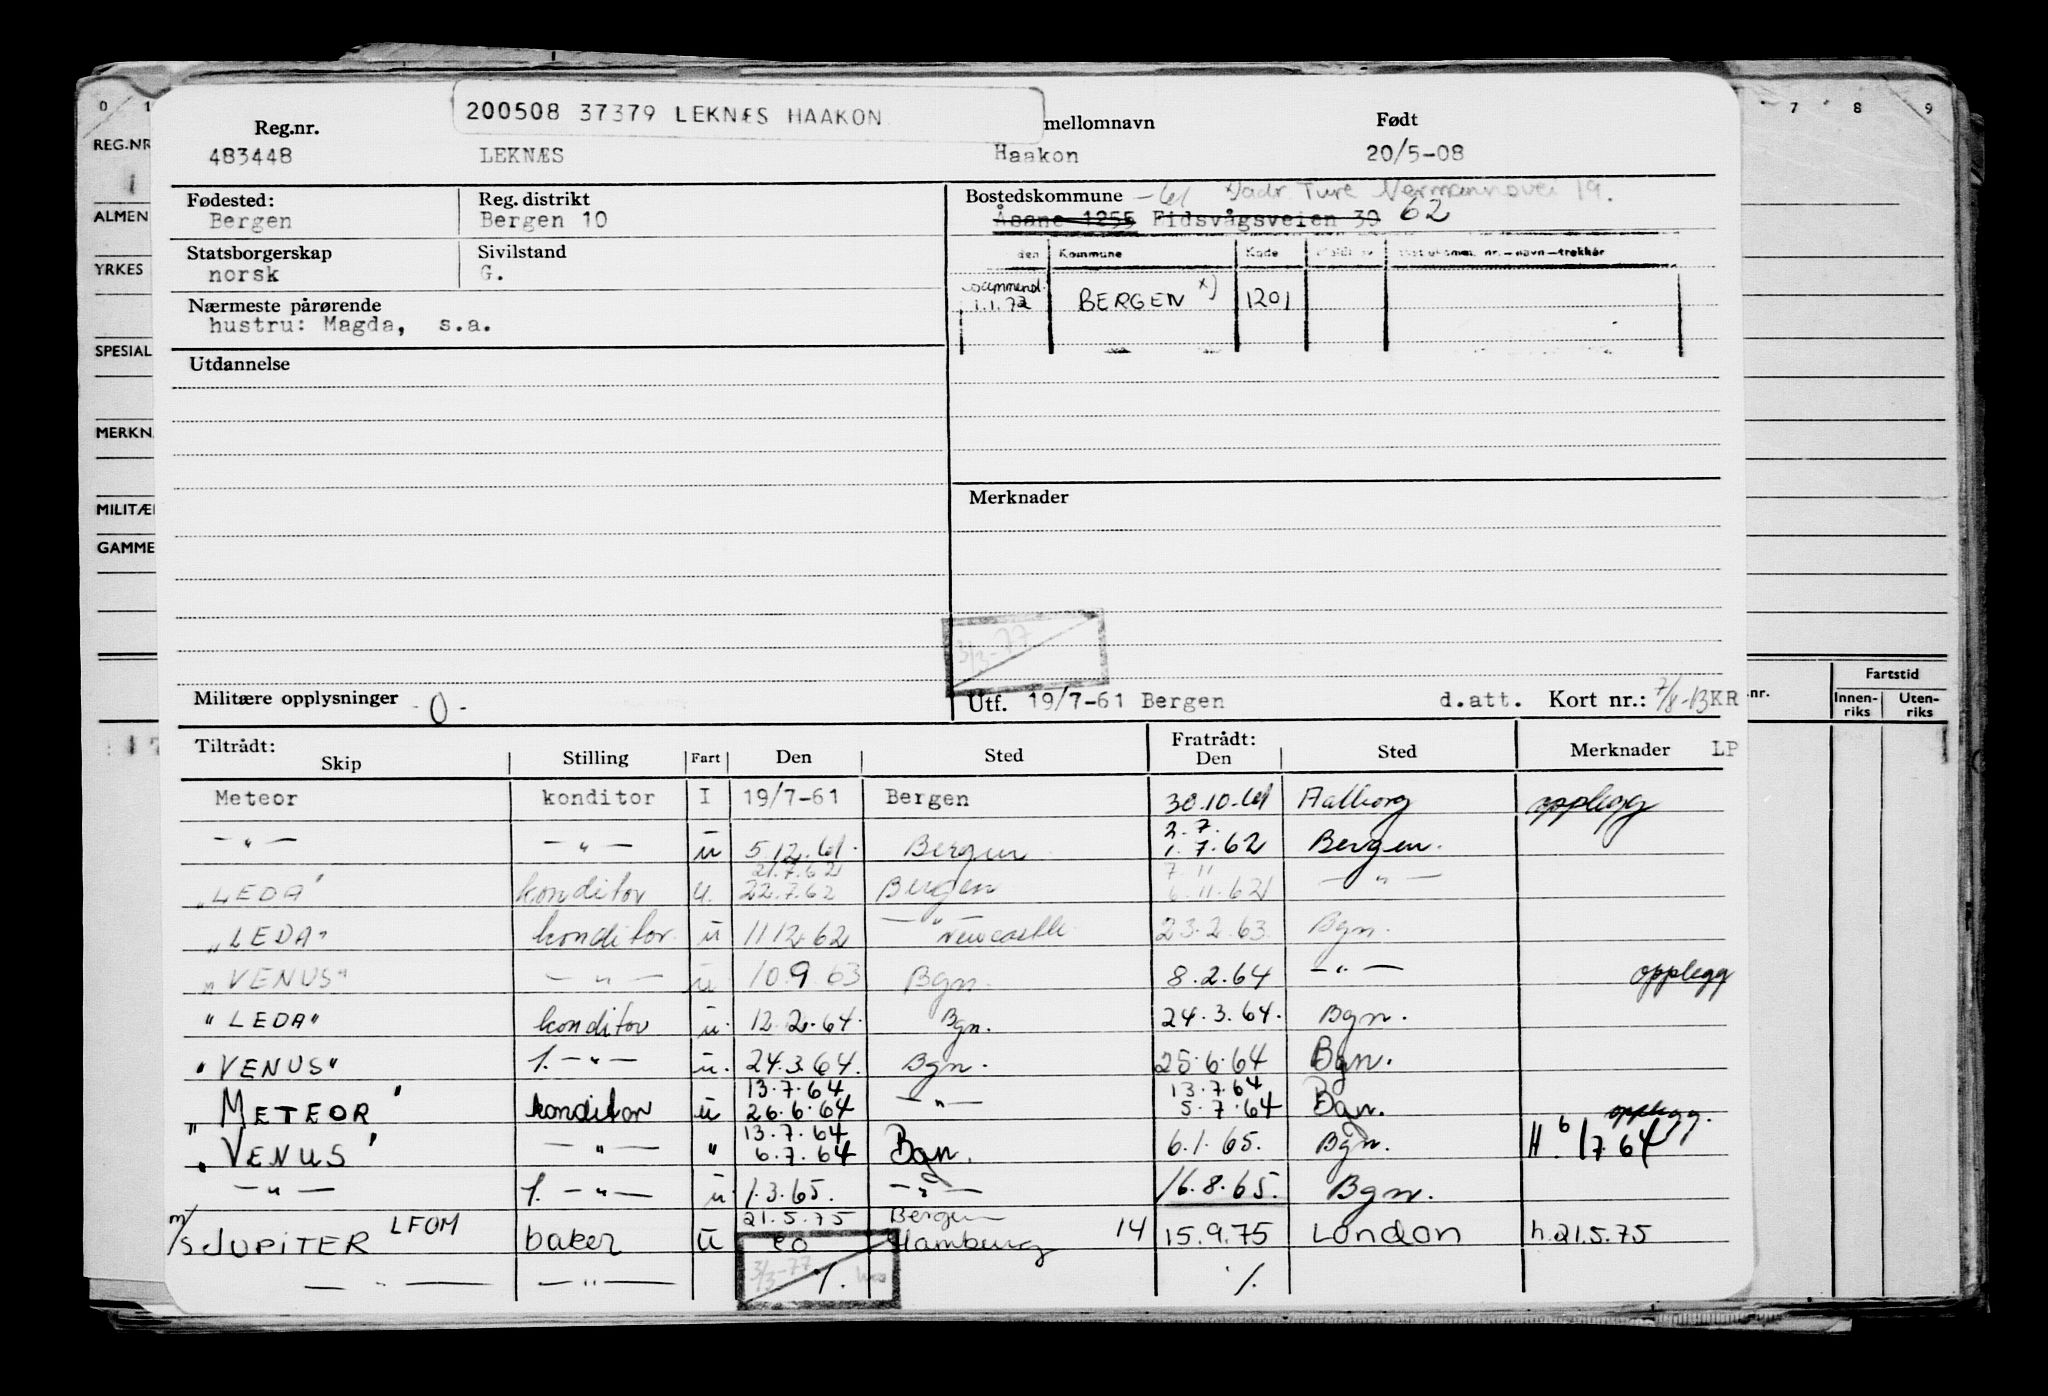 0 1
REG.NR
ALMEN
YRKES
SPESIAL
MERKN.
MILITÆ
GAMME
7 8 9
200508 37379 LEKNÆS HAAKON
Reg.nr. mellomnavn Født
483448 LEKNÆS Haakon 20/5-08
Fødested: Reg.distrikt Bostedskommune -61 19.
Bergen Bergen 10 Åsane 1255 Eidsvågsveien 39 62
Statsborgerskap Sivilstand den Kommune Kode
norsk G.
1.1.72 BERGEN x) 1201
Nærmeste pårørende
hustru: Magda, s.a.
Utdannelse
Merknader
3/3-77
Militære opplysninger -0-
Utf. 19/7-61 Bergen d.att. Kort nr.: 7/8-13 KR
nr. Fartstid
Innen-riks Uten-riks
Tiltrådt: Fratrådt:
Skip Stilling Fart Den Sted Den Sted Merknader LP
Meteor konditor I 19/7-61 Bergen 30.10.61 Aalborg opplegg
2.7.
— " — — " — u 5.12.61. Bergen 1.7.62 Bergen.
21.7.62 7.11
"LEDA" konditor u. 22.7.62 Bergen 6.11.62 — " —
"LEDA" konditor. u 11.12.62 — " — Newcastle. 23.2.63. Bgn.
"VENUS" — " — u 10.9.63 Bgn. 8.2.64 — " — opplegg
"LEDA" konditor u. 12.2.64. Bgn. 24.3.64. Bgn.
"VENUS" 1. — " — u. 24.3.64. Bgn. 25.6.64 Bgn.
13.7.64 13.7.64
"METEOR" konditor u 26.6.64 — " — 5.7.64 Bgn. opplegg.
13.7.64
"VENUS" — " — " 6.7.64 Bgn. 6.1.65. Bgn. H. 6/7.64
— " — 1. — " — u. 1.3.65. — " — 16.8.65. Bgn.
21.5.75 Bergen
m/s JUPITER LFOM baker u 20 Hamburg 14 15.9.75 London h.21.5.75
— " — — " — 3/3-77 %. %.